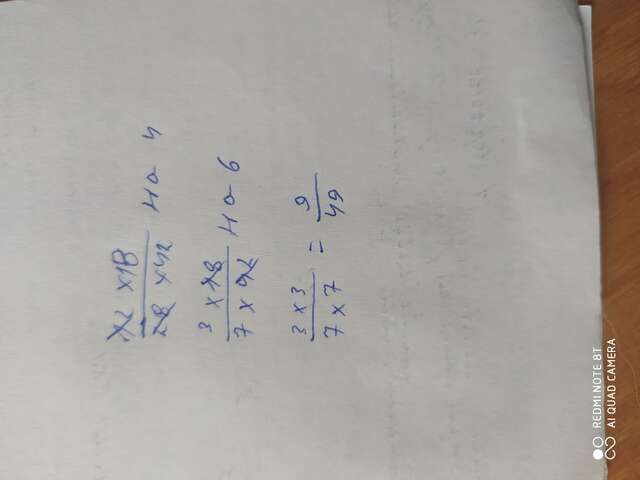 12 x 18
28 x 42 на 4
3 x 18
7 x 42 на 6
3 x 3
7 x 7 = 9
49
REDMI NOTE 8T
AI QUAD CAMERA